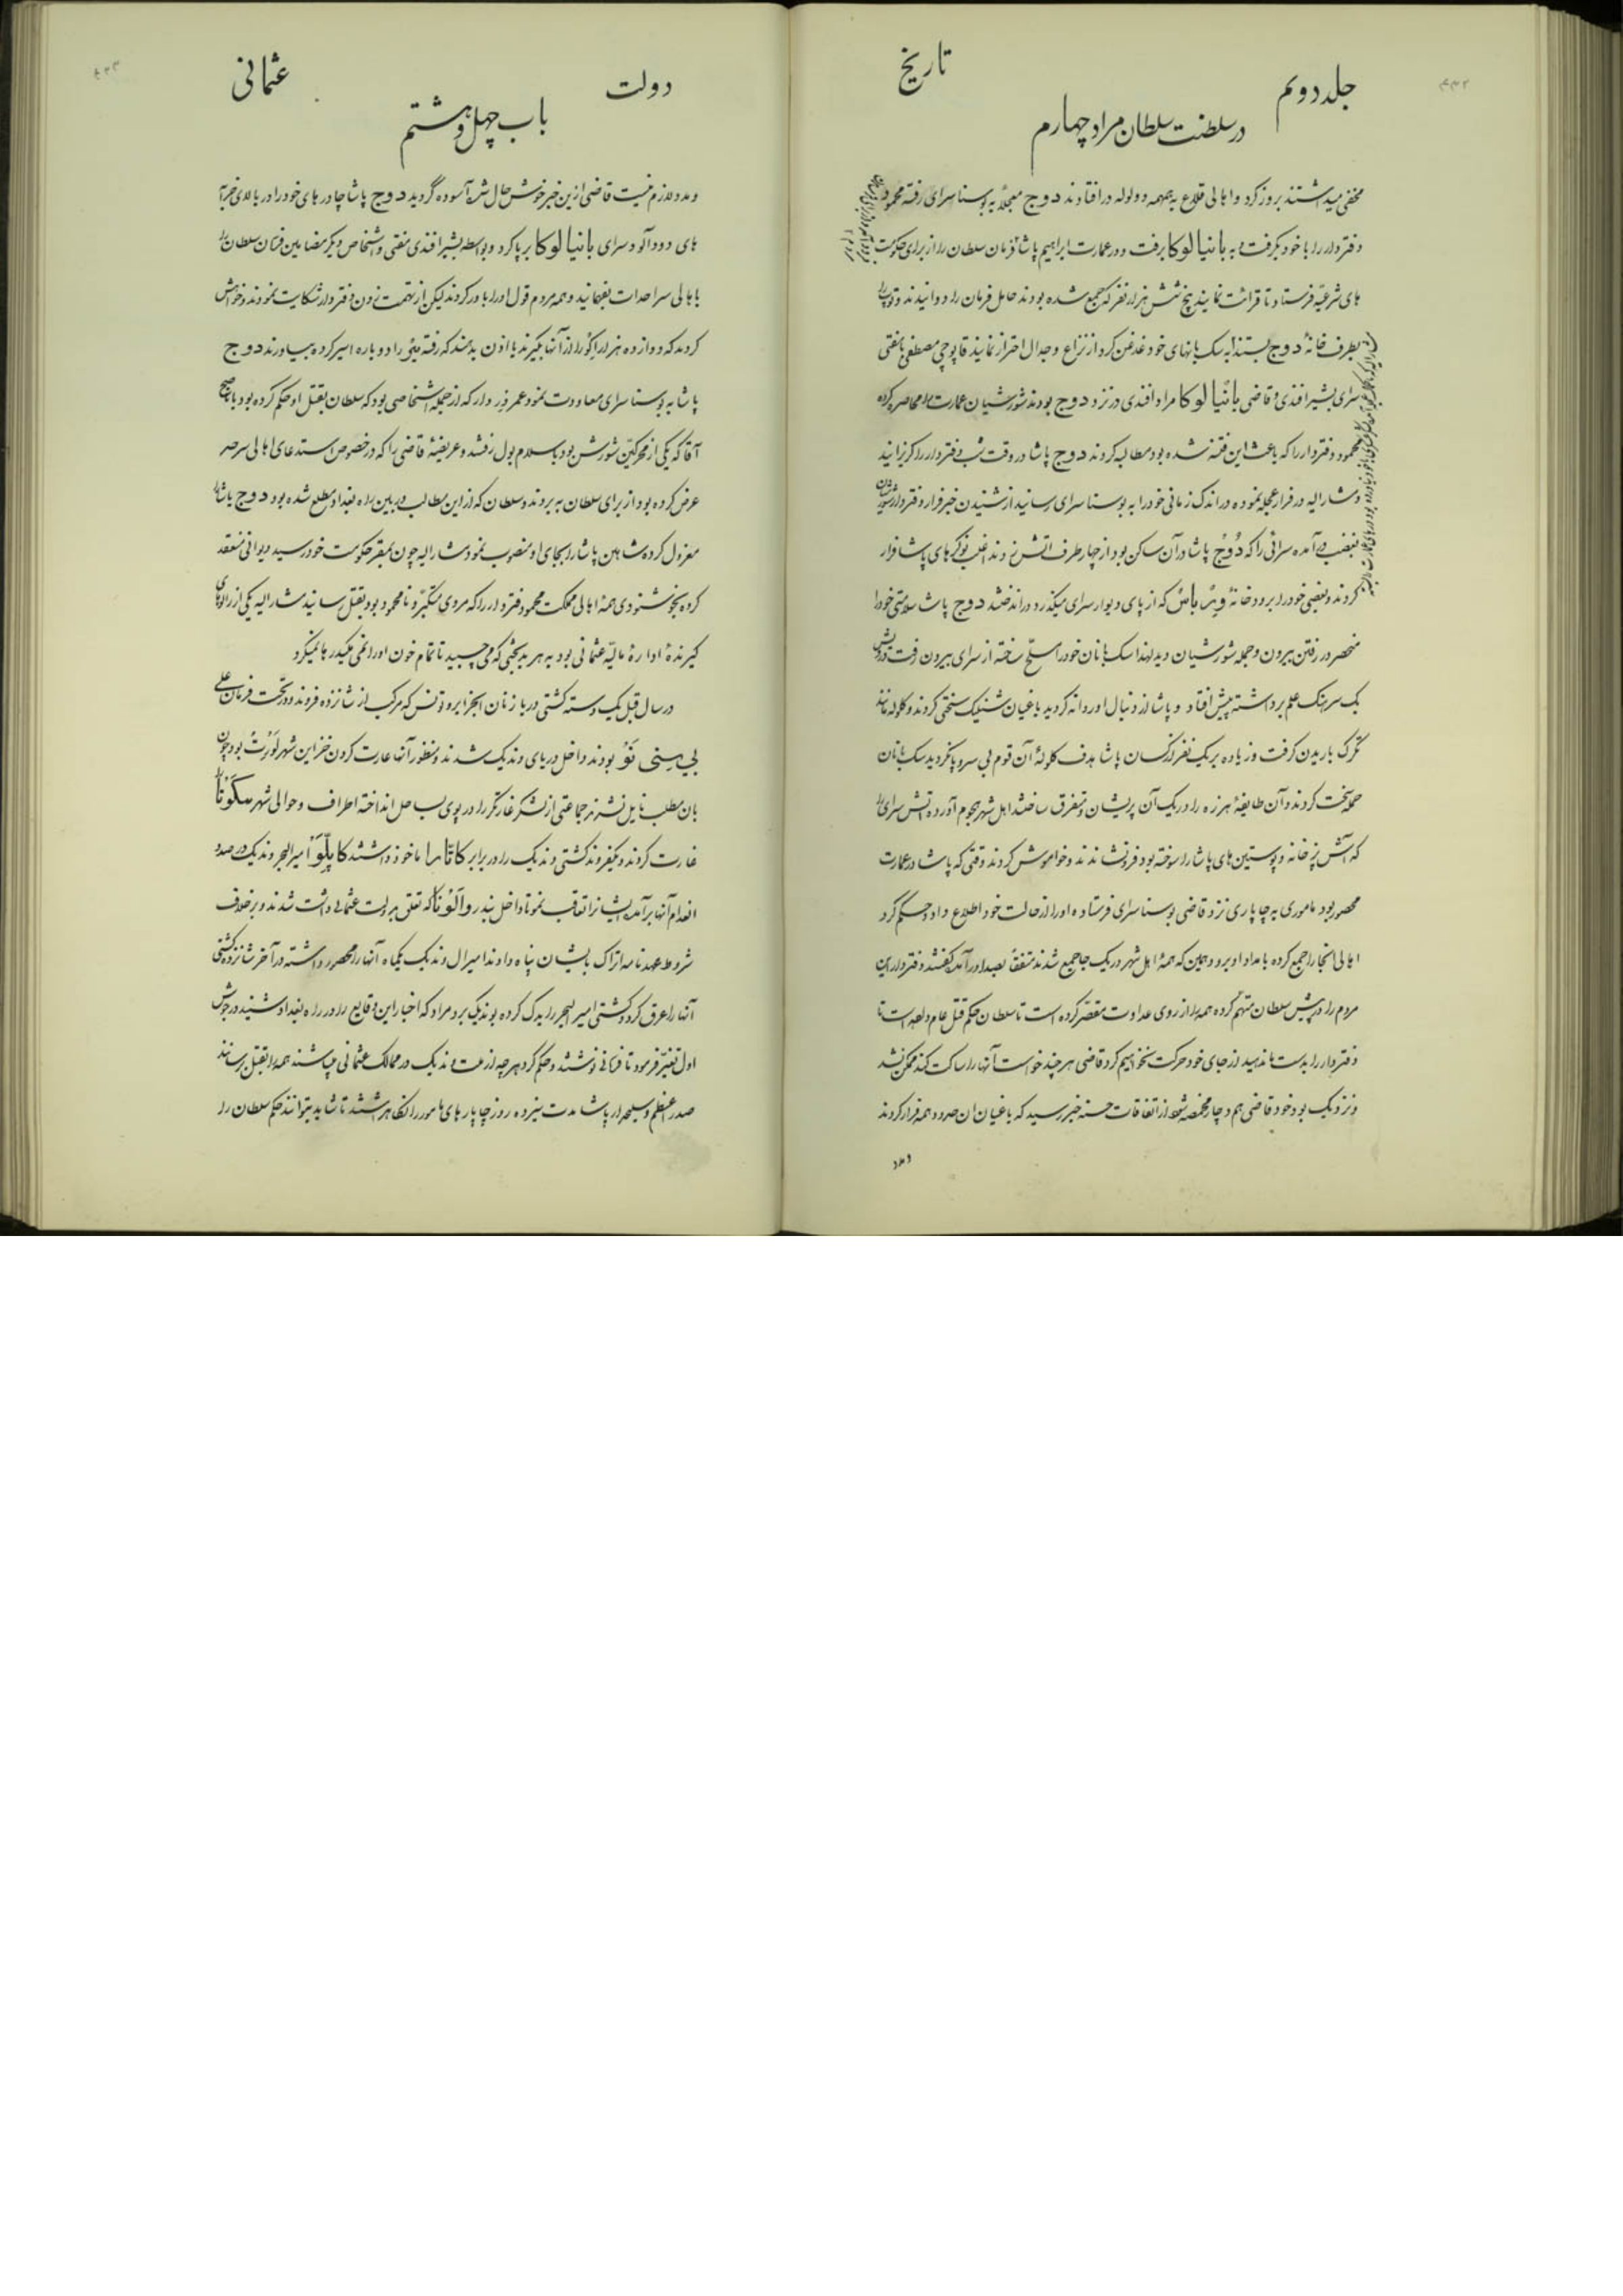 جلد دویم
تاریخ
در سلطنت سلطان مراد چهارم
مخفی میداشتند بروز کرد و اهالی قلاع به همهمه و ولوله در افتادند دوج معجلاً به بوسنا سرای رفته محمود
دفتردار را با خود بگرفت و به بانیا لوکا برفت و در عمارت ابراهیم پاشا فرمان سلطان را از برای حکومت
های شرعیّه فرستاد تا قرائت نمایند پنج شش هزار نفر که جمع شده بودند حامل فرمان را دوانیدند و توپ را
بطرف خانهٔ دوج بستند به سک بانهای خود غدغن کرد از نزاع و جدال احتراز نمایند قاپوچی مصطفی با مفتی
سرای بشیر افندی و قاضی بانیا لوکا مراد افندی در نزد دوج بودند شورشیان عمارت را محاصره کرده
محمود دفتردار را که باعث این فتنه شده بود مطالبه کردند دوج پاشا در وقت شب دفتردار را گریزانید
مشارالیه در فرار عجله نموده در اندک زمانی خود را به بوسنا سرای رسانید از شنیدن خبر فرار دفتردار شورشیان
بغضب در آمده سرائی را که دوج پاشا در آن ساکن بود از چهار طرف آتش زدند اغلب نوکرهای پاشا فرار
کردند و بعضی خود را برودخانهٔ ویر باس که از پای دیوار سرای میگذرد در انداختند دوج پاشا سلامتی خود را
منحصر در رفتن بیرون و حمله شورشیان دید لهذا سک بانان خود را مسلّح ساخته از سرای بیرون رفت درویش
بک سرهنک علم برداشته پیش افتاد و پاشا از دنبال او روانه گردید باغیان شنلیک سختی کردند و گلوله مانند
تگرک باریدن گرفت و زیاده بر یک نفر از کسان پاشا هدف گلولهٔ آن قوم بی سر و پا نگردید سک بانان
حمله سخت کردند و آن طایفهٔ هرزه را در یک آن پریشان و متفرق ساختند اهل شهر هجوم آورده آتش سرای را
که آش پزخانه و پوستین های پاشا را سوخته بود فرو نشاندند و خاموش کردند وقتی که پاشا در عمارت
محصور بود ماموری به چاپاری نزد قاضی بوسنا سرای فرستاده او را از حالت خود اطلاع داد و حکم کرد
اهالی انجا را جمع کرده بامداد او برود همین که همهٔ اهل شهر در یک جا جمع شدند متفقاً بصدا در آمده گفتند دفتردار این
مردم را در پیش سلطان متهّم کرده همه را از روی عداوت مقصّر کرده است تا سلطان حکم قتل عام داده است تا
دفتردار را بدست ما ندهید از جای خود حرکت نخواهیم کرد قاضی هر چند خواست آنها را ساکت کند ممکن نشد
و نزدیک بود خود قاضی هم دچار مخمصه شود از اتفاقات حسنه خبر رسید که باغیان ان حدود همه فرار کردند
و مدد
دولت
عثمانی
باب چهل و هشتم
و مدد لازم نیست قاضی از این خبر خوش حال شده آسوده گردید دوج پاشا چادرهای خود را در بالای خرابه
های دود آلود سرای بانیا لوکا بر پا کرد و بواسطه بشیر افندی مفتی و اشخاص دیگر مضامین فرمان سلطان را
باهالی سرحدات بفهمانید و همه مردم قول او را باور کردند لیکن از تهمت زدن دفتردار شکایت نمودند و خواهش
کردند که دوازده هزار اکو را از آنها بگیرند یا اذن بدهند که رفته را دوباره اسیر کرده بیاورند دوج
پاشا به بوسنا سرای معاودت نمود عمر دار که از جمله اشخاصی بود که سلطان بقتل او حکم کرده بود با صبح
آقا که یکی از محرکین شورش بود باسلامبول رفتند و عریضهٔ قاضی را که در خصوص استدعای اهالی سرحد
عرض کرده بود از برای سلطان به بردند و سلطان که از این مطالب در بین راه بغداد مطلع شده بود دوج پاشا را
معزول کرده شاهین پاشا را بجای او منصوب نمود مشارالیه چون بمقر حکومت خود رسید دیوانی منعقد
کرده بخوشنودی همهٔ اهالی مملکت محمود دفتردار را که مردی متکبّر و نا محمود بود بقتل رسانید مشارالیه یکی از زالوهای
گیرندهٔ ادارهٔ مالیّه عثمانی بود به هر بدبختی که می چسبید تا تمام خون او را نمی مکید رها نمیکرد
در سال قبل یک دسته کشتی دریا زنان الجزایر و تونس که مرکب از شانزده فروند و در تحت فرمان علی
بی سنی نو بودند داخل دریای وندیک شدند و منظور آنها غارت کردن خزاین شهر لورت بود چون
بان مطلب نایل نشدند جماعتی از لشکر غارتگر را در پوی بساحل انداخته اطراف و حوالی شهر سکونا را
غارت کردند و یکفروند کشتی وندیک را در برابر کاتارا ماخوذ داشتند کاپلّو امیرالبحر وندیک در صدد
انعدام آنها بر آمده ایشانرا تعاقب نمود تا داخل بندر والونا که تعلق بدولت عثمانی داشت شدند و بر خلاف
شروط عهدنامه اتراک بایشان پناه دادند امیرال وندیک یکماه آنها را محصور داشته در آخر شانزده کشتی
آنها را غرق کرد و کشتی امیر البحر را یدک کرده بوندیک برد مراد که اخبار این وقایع را در راه بغداد شنید در جوش
اول تغیّر فرمود تا فرمانی نوشتند و حکم کرد هر چه از ملت وندیک در ممالک عثمانی میباشند همه را بقتل برسانند
صدر اعظم و سلحدار پاشا مدت سیزده روز چاپارهای مامور را نگاه داشتند تا شاید بتوانند حکم سلطان را